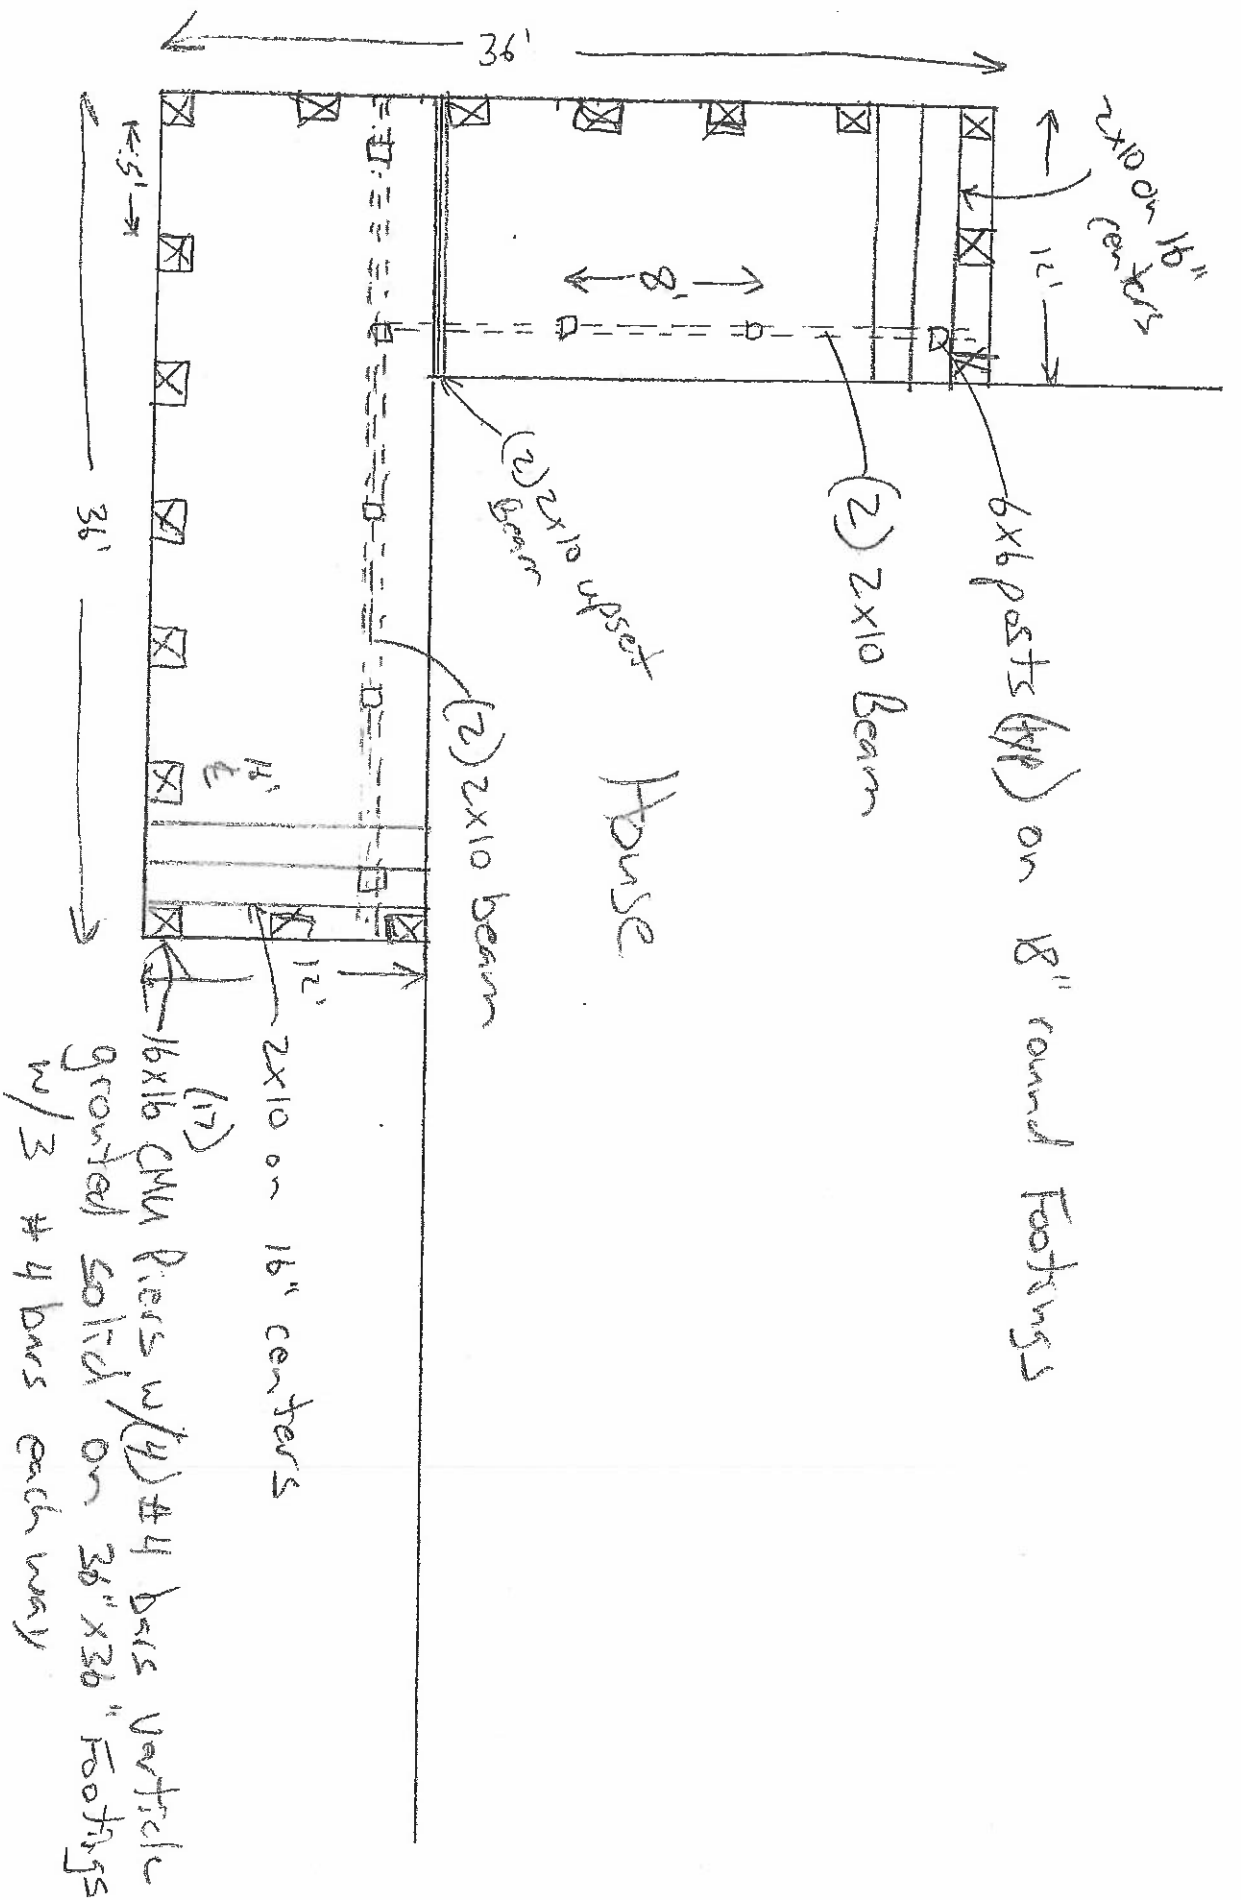 36'
2x10 on 16"
centers
12'
8'
6x6 posts (typ) on 18" round Footings
(2) 2x10 Beam
(2) 2x10 upset
Beam
House
(2) 2x10 beam
5'
36'
16"
12'
2x10 on 16" centers
(17)
16x16 CMU Piers w/(4) #4 bars Verticle
grouted solid on 36"x36" Footings
w/3 #4 bars each way